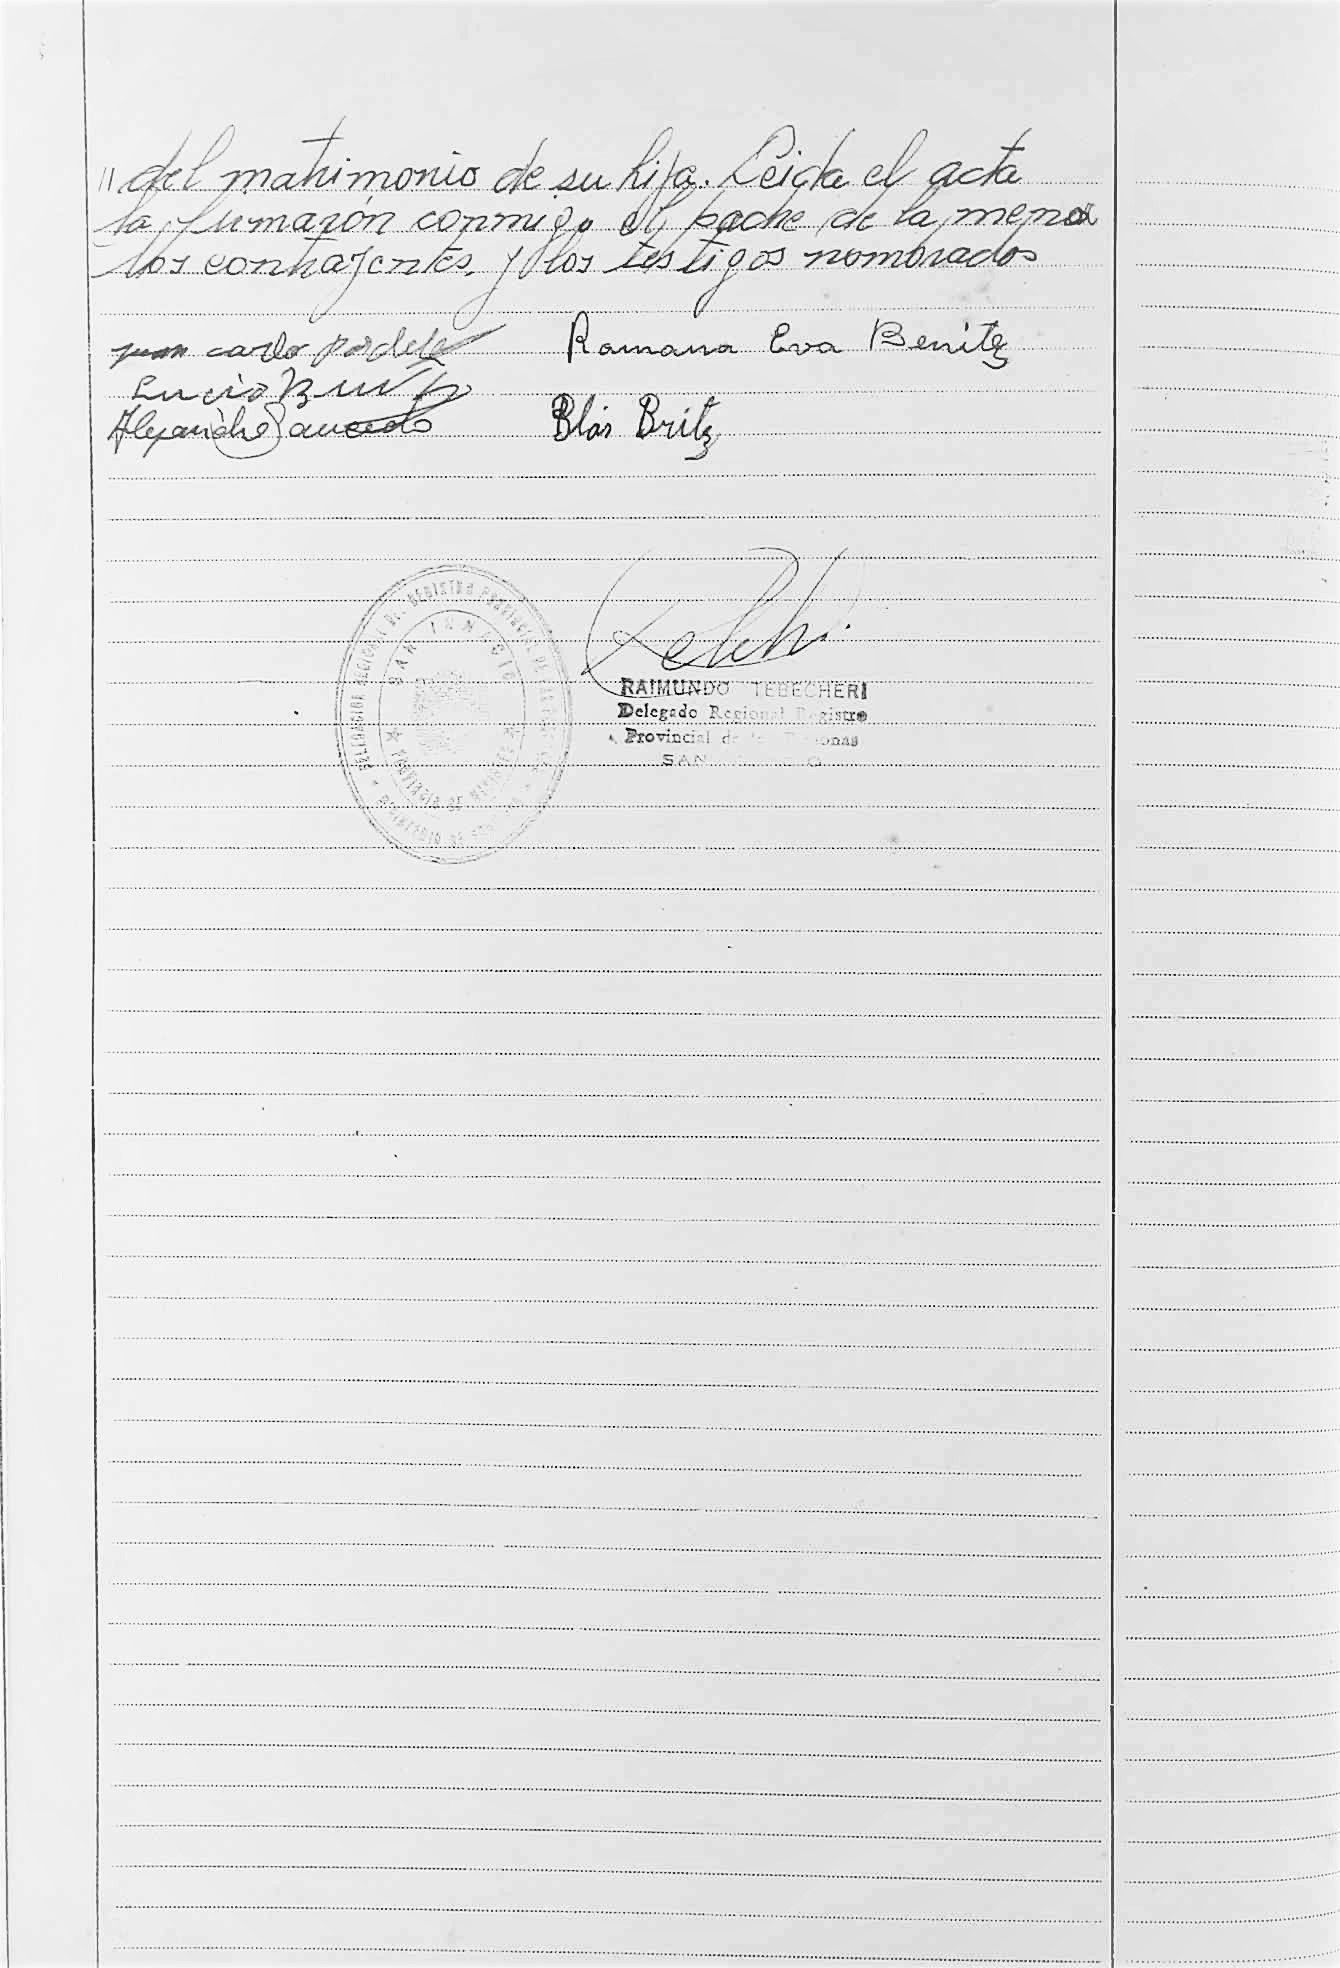 11 del matrimonio de su hija. Leida el acta
la firmarón conmigo el padre de la menor
los contrayentes, y los testigos nombrados
juan carlo Ramana Eva Benitez
Lucio
Alejandro Saucedo Blás Britz
DELEGACION REGIONAL DEL REGISTRO PROVINCIAL DE LAS PERSONAS
SAN IGNACIO
PROVINCIA DE MISIONES
MINISTERIO DE GOBIERNO
RAIMUNDO TEBECHERI
Delegado Regional Registro
Provincial de las Personas
SAN IGNACIO